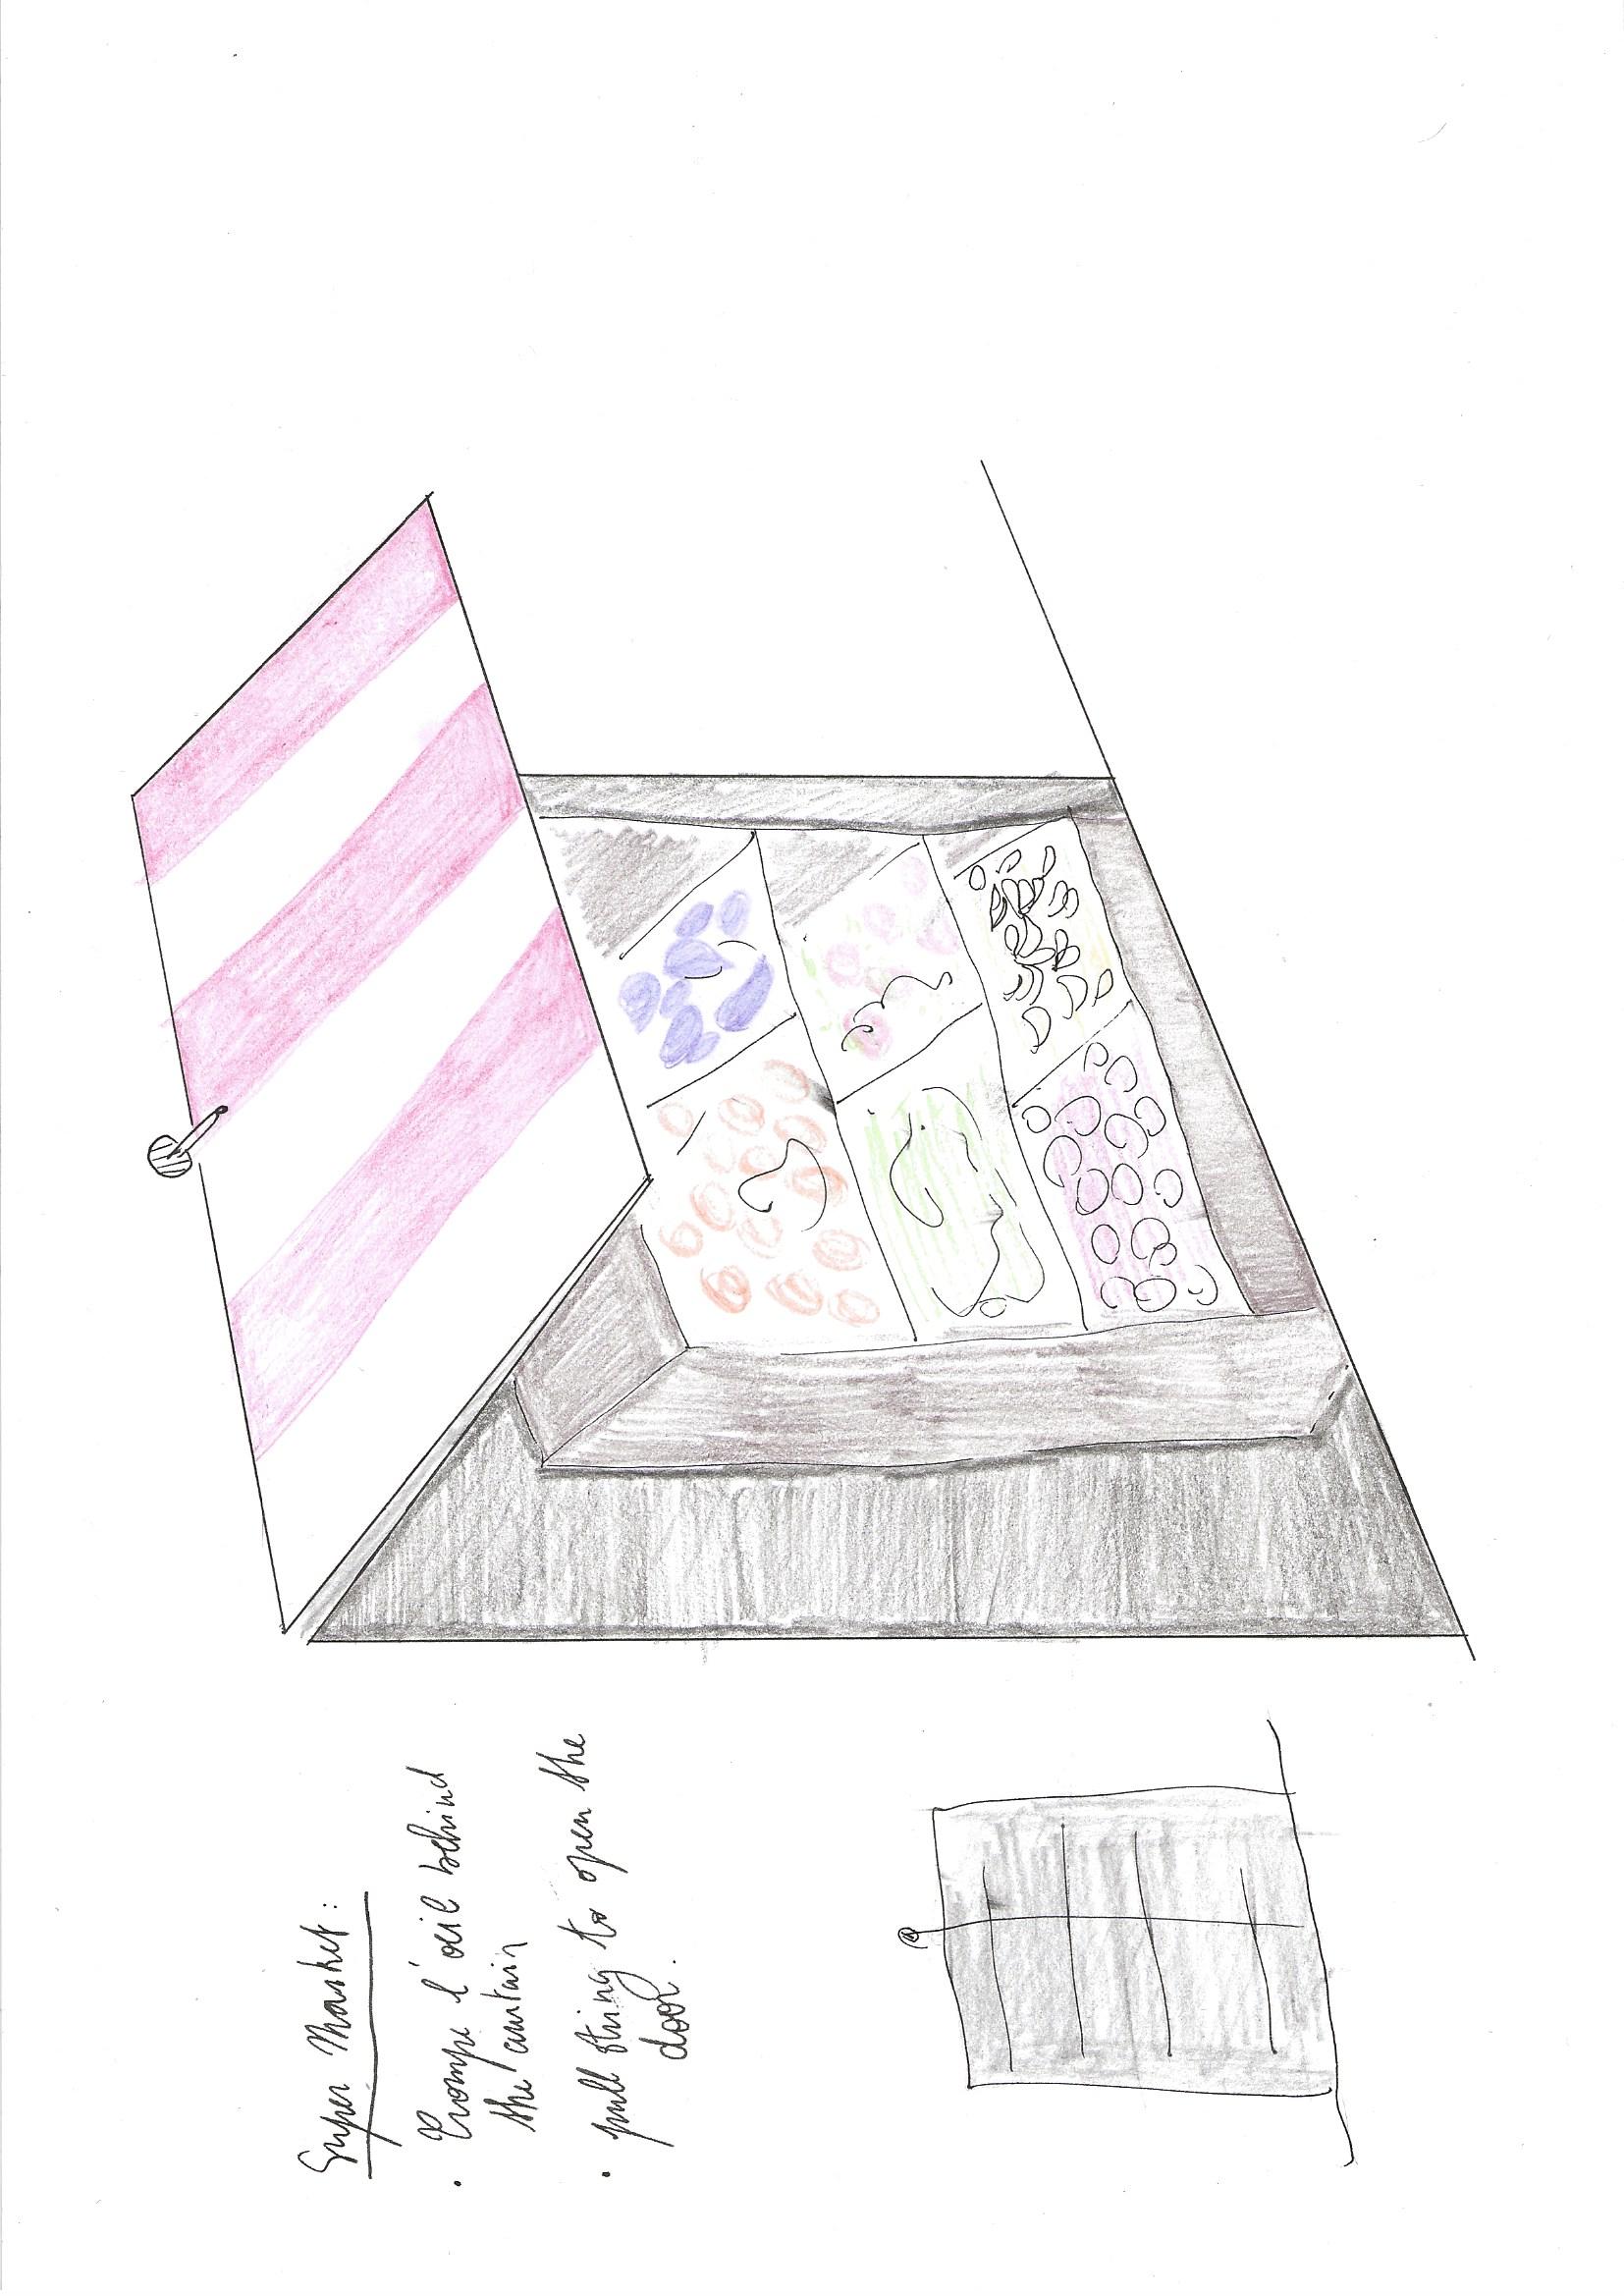 Super Market:
• Trompe l'oeil behind
the curtain
• pull string to open the
door.